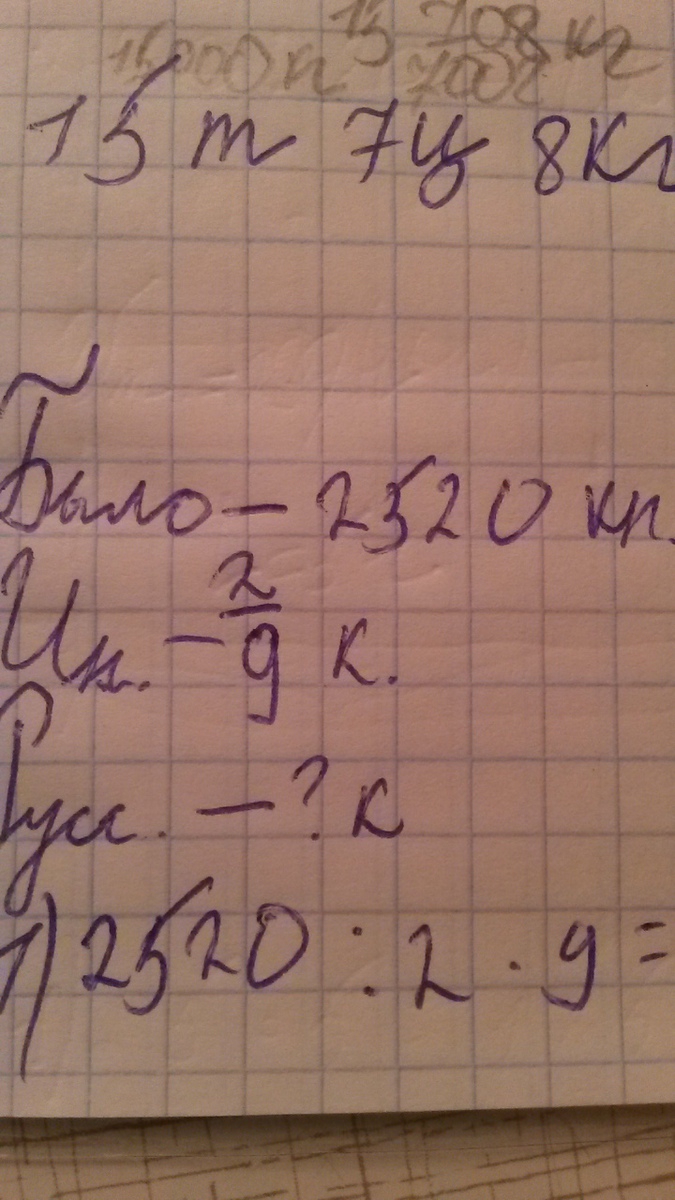 15 708 кг
15000 к 700г
15 т 7ц 8кг
Было – 2520 кн.
Ин. – 2/9 к.
Русс. – ? к
1) 2520 : 2 · 9 =